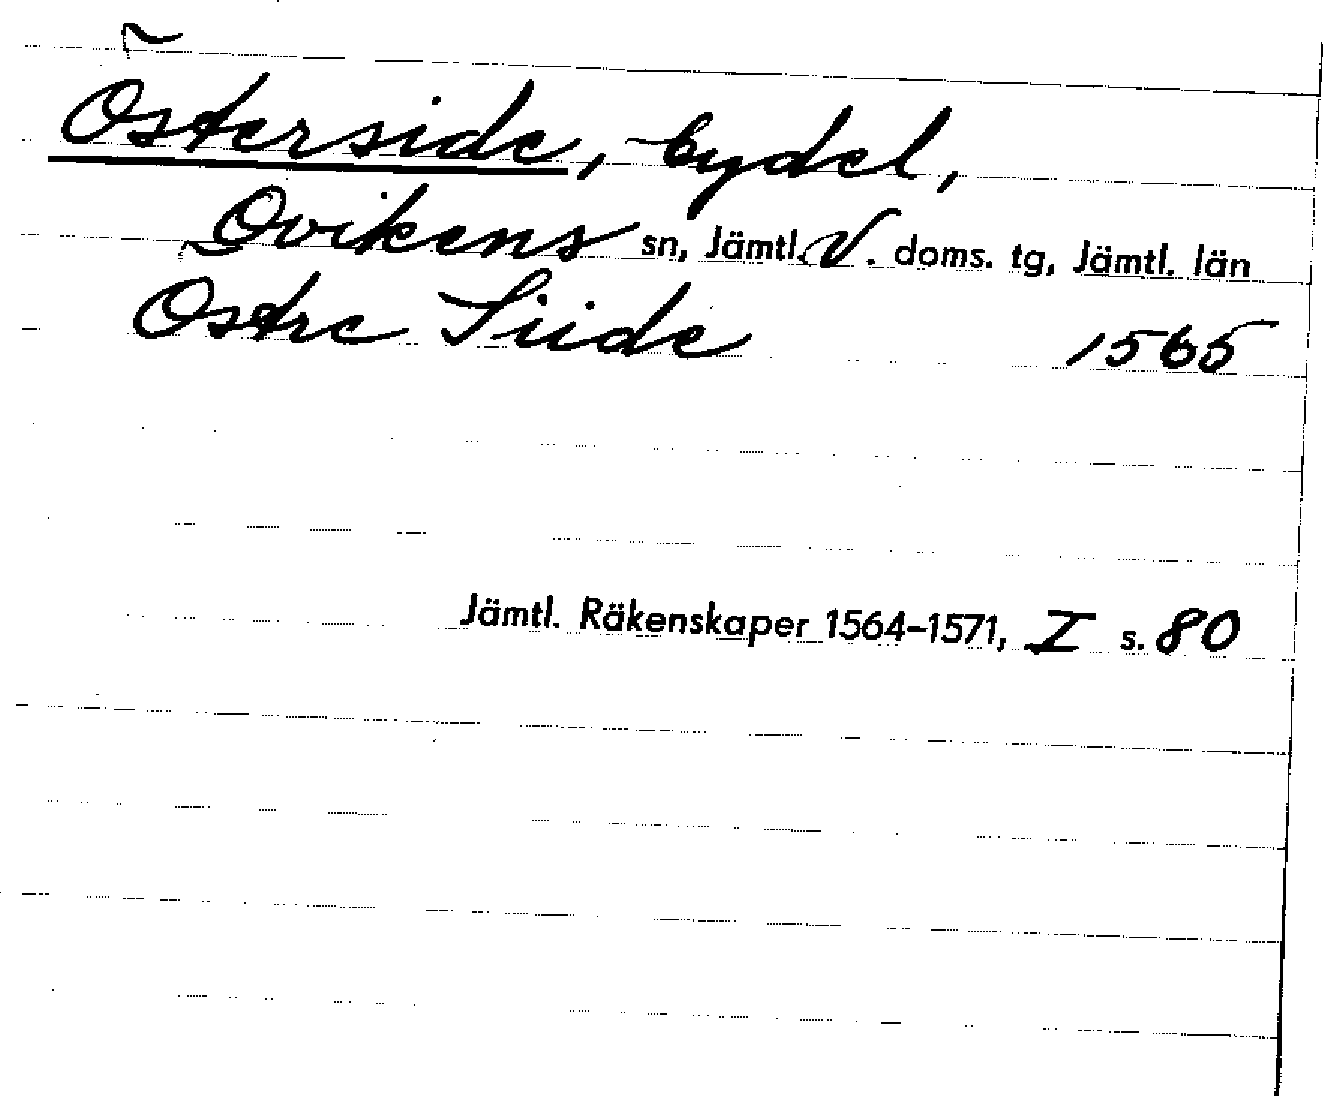 Österside, bydel,
Ovikens sn, Jämtl. V. doms. tg, Jämtl. län
Östre Siide 1565
Jämtl. Räkenskaper 1564-1571, I s. 80